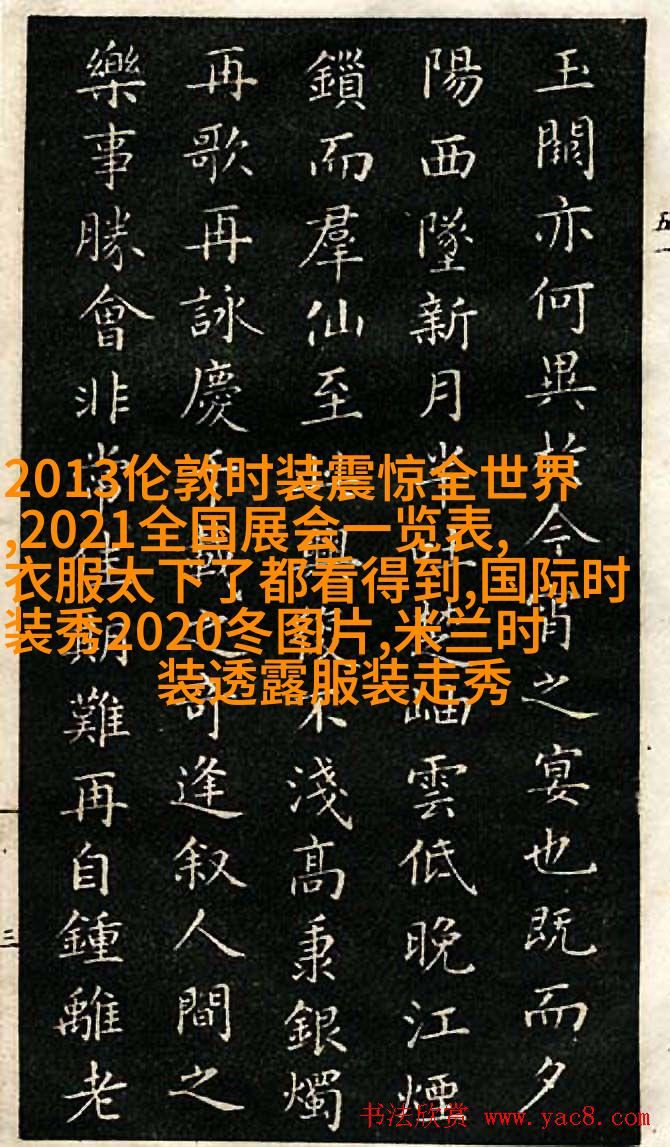 玉闕亦何異於今宵之宴也既而夕
陽西墜新月半楚岫雲低晚江煙
鎖而羣仙至興不淺高秉銀燭
再歌再詠慶千載之可逢叙人間之
樂事勝會非常佳期難再自鍾離老
五
三
2013伦敦时装震惊全世界
,2021全国展会一览表,
衣服太下了都看得到,国际时
装秀2020冬图片,米兰时
装透露服装走秀
书法欣赏 www.yac8.com